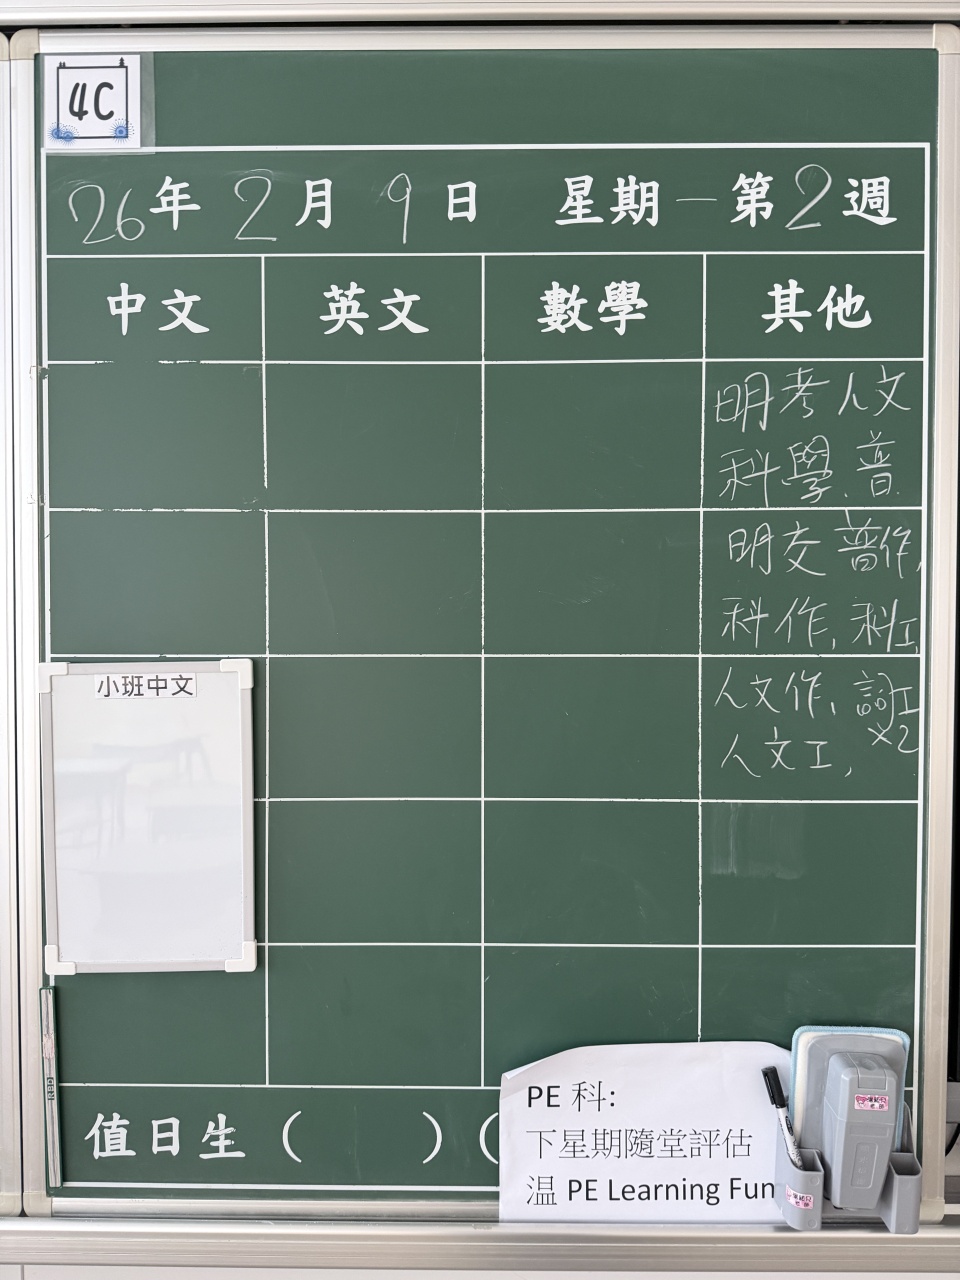 4C
26年 2月 9日 星期一第2週
中文 英文 數學 其他
明考人文
科學、普
明交 普作,
科作, 科工,
人文作、詞工
x2
人文工,
小班中文
值日生 ( ) (
PE 科:
下星期隨堂評估
温 PE Learning Fun